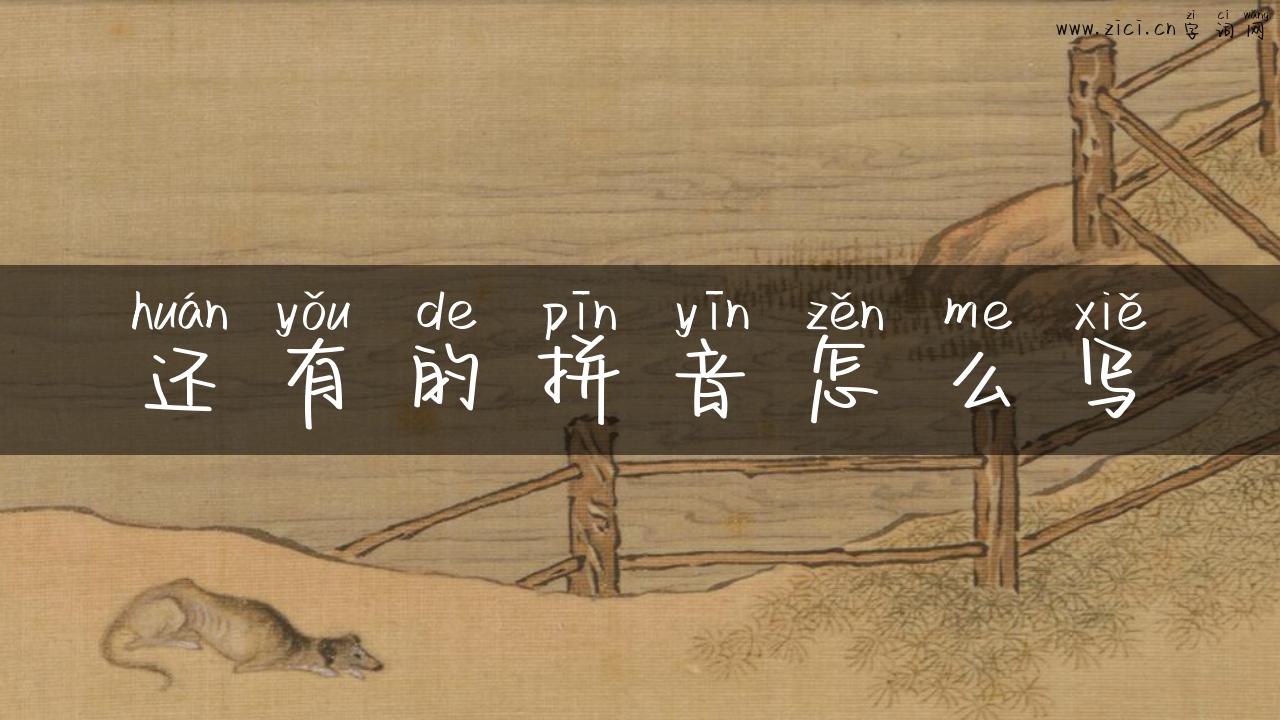 zi ci wang
www.zici.cn字词网
huán yǒu de pīn yīn zěn me xiě
还有的拼音怎么写